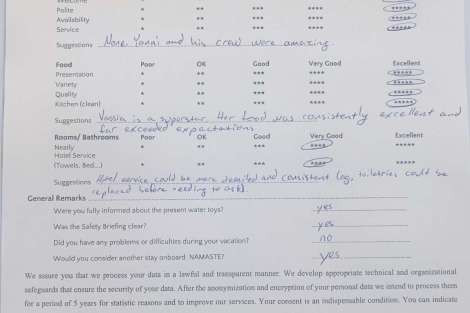 Polite * ** *** **** *****
Availability * ** *** **** *****
Service * ** *** **** *****
Suggestions None, Yanni and his crew were amazing.
Food Poor OK Good Very Good Excellent
Presentation * ** *** **** *****
Variety * ** *** **** *****
Quality * ** *** **** *****
Kitchen (clean) * ** *** **** *****
Suggestions Vassia is a superstar. Her food was consistently excellent and
far exceeded expectations
Rooms/ Bathrooms Poor OK Good Very Good Excellent
Neatly * ** *** **** *****
Hotel Service
(Towels, Bed...) * ** *** **** *****
Suggestions Hotel service could be more detailed and consistent (eg. toiletries could be
replaced before needing to ask).
General Remarks
Were you fully informed about the present water toys? yes
Was the Safety Briefing clear? yes
Did you have any problems or difficulties during your vacation? no
Would you consider another stay onboard NAMASTE? yes
We assure you that we process your data in a lawful and transparent manner. We develop appropriate technical and organizational
safeguards that ensure the security of your data. After the anonymization and encryption of your personal data we intend to process them
for a period of 5 years for statistic reasons and to improve our services. Your consent is an indispensable condition. You can indicate